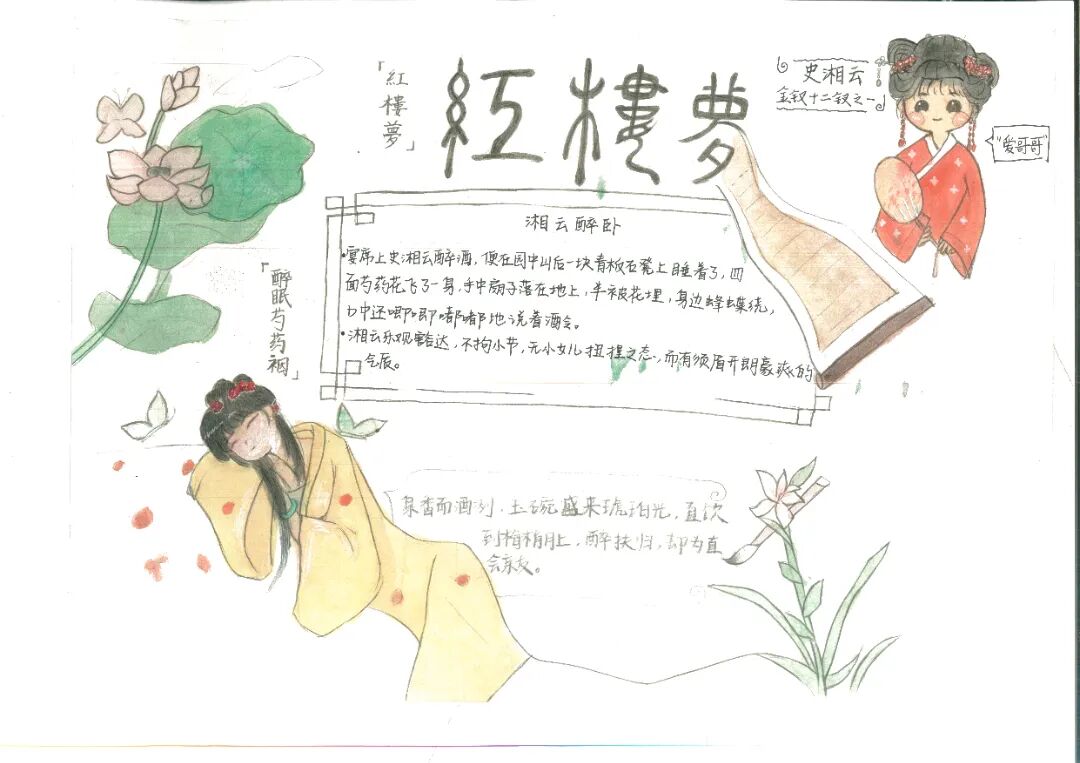 「紅樓夢」
紅樓夢
史湘云
金钗十二钗之一
"爱哥哥"
湘云醉卧
•宴席上史湘云醉酒,便在园中山后一块青板石凳上睡着了,四
面芍药花飞了一身,手中扇子落在地上,半被花埋,身边蜂蝶绕,
口中还唧唧嘟嘟地说着酒令。
•湘云乐观豁达,不拘小节,无小女儿扭捏之态,而有须眉开朗豪爽的
气质。
「醉眠芍药裀」
泉香而酒冽,玉碗盛来琥珀光,直饮
到梅梢月上,醉扶归,却为宜
会亲友。